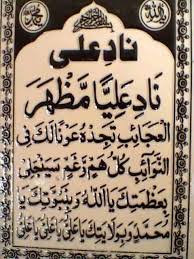 الله
بسم الله الرحمن الرحيم
محمد
ناد علی
ناد علیا مظهر
العجائب تجده عونالك فی
النوائب کل هم وغم سینجلی
بعظمتك یا الله وبنبوتك یا
محمد وبولایتك یا علی یا علی یا علی